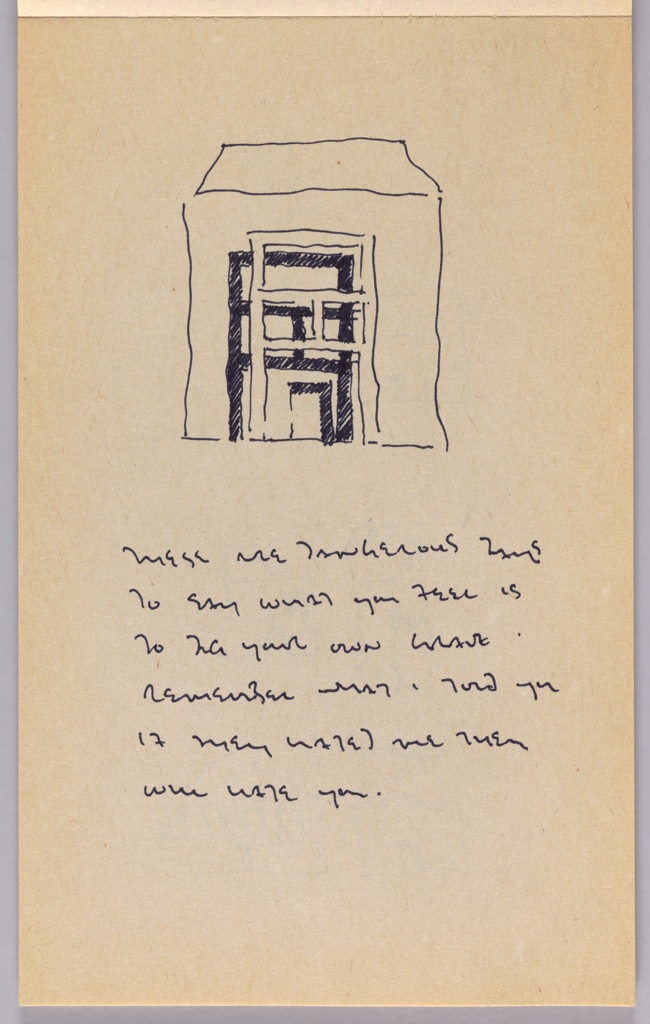 THESE ARE DANGEROUS DAYS
TO SAY WHAT YOU FEEL IS
TO DIG YOUR OWN GRAVE.
REMEMBER WHAT I TOLD YOU
IF THEY HATED ME THEY
WILL HATE YOU.